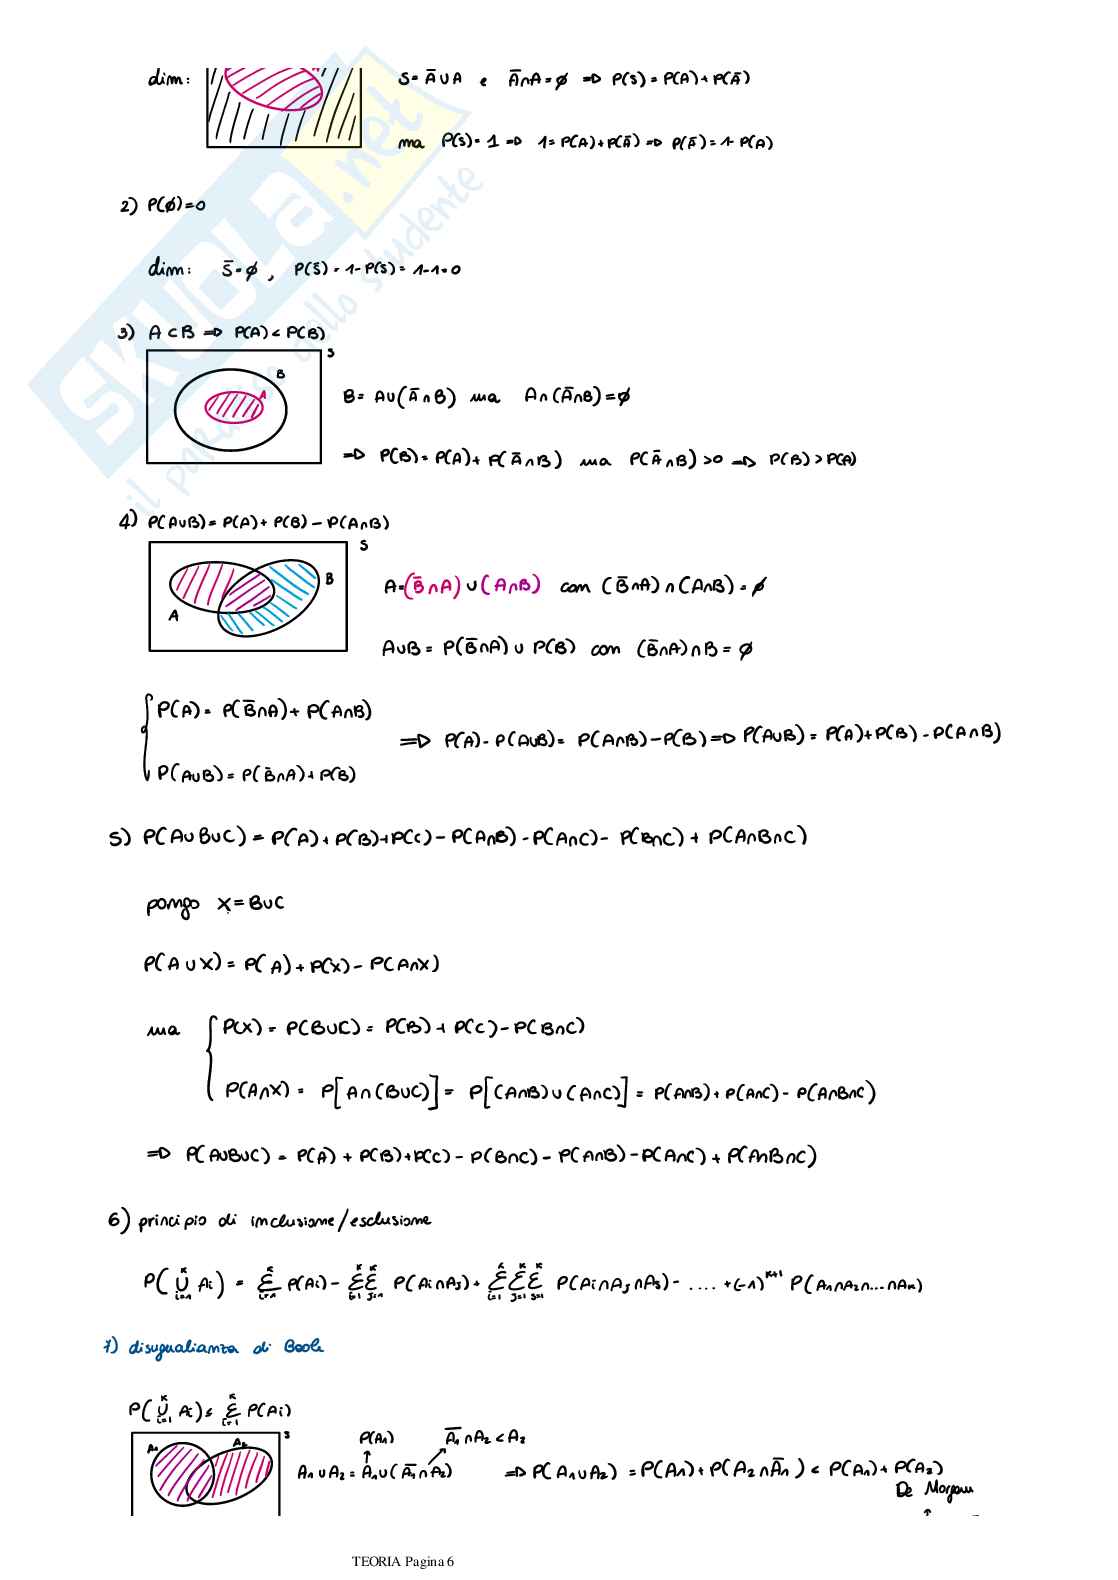 dim: S= A̅ ∪ A e A̅∩A=∅ ⇒ P(S)= P(A)+ P(A̅)
ma P(S)= 1 ⇒ 1= P(A)+P(A̅) ⇒ P(A̅)= 1- P(A)
2) P(∅)=0
dim: S̅=∅, P(S̅)= 1-P(S)= 1-1=0
3) A⊂B ⇒ P(A)<P(B)
S
B
A
B= A∪(A̅∩B) ma A∩(A̅∩B)=∅
⇒ P(B)= P(A)+ P(A̅∩B) ma P(A̅∩B)>0 ⇒ P(B)>P(A)
4) P(A∪B)= P(A)+ P(B) - P(A∩B)
S
B
A
A=(B̅∩A)∪(A∩B) con (B̅∩A)∩(A∩B)=∅
A∪B= P(B̅∩A)∪P(B) con (B̅∩A)∩B=∅
P(A)= P(B̅∩A)+ P(A∩B)
⇒ P(A)- P(A∪B)= P(A∩B)-P(B) ⇒ P(A∪B)= P(A)+P(B)-P(A∩B)
P(A∪B)= P(B̅∩A)+P(B)
5) P(A∪B∪C)= P(A)+P(B)+P(C)-P(A∩B)-P(A∩C)-P(B∩C)+P(A∩B∩C)
pongo X=B∪C
P(A∪X)= P(A)+P(X)-P(A∩X)
ma P(X)= P(B∪C)= P(B)+P(C)-P(B∩C)
P(A∩X)= P[A∩(B∪C)]= P[(A∩B)∪(A∩C)]= P(A∩B)+P(A∩C)-P(A∩B∩C)
⇒ P(A∪B∪C)= P(A)+P(B)+P(C)-P(B∩C)-P(A∩B)-P(A∩C)+P(A∩B∩C)
6) principio di inclusione/esclusione
P(⋃ᵢ₌₁ᴷ Ai)= Σᵢ₌₁ᴷ P(Ai)- Σᵢ₌₁ᴷ Σⱼ₌₁ᴷ P(Ai∩Aj)+ Σᵢ₌₁ᴷ Σⱼ₌₁ᴷ Σₛ₌₁ᴷ P(Ai∩Aj∩As)- .... +(-1)ᴷ⁺¹ P(A₁∩A₂∩...∩Aκ)
7) disugualianza di Boole
P(⋃ᵢ₌₁ᴷ Ai)≤ Σᵢ₌₁ᴷ P(Ai)
S
A₁
A₂
P(A₁) A̅₁∩A₂<A₂
A₁∪A₂=A₁∪(A̅₁∩A₂) ⇒ P(A₁∪A₂)=P(A₁)+P(A₂∩A̅₁)<P(A₁)+P(A₂)
De Morgan
TEORIA Pagina 6
SKUOLA.net